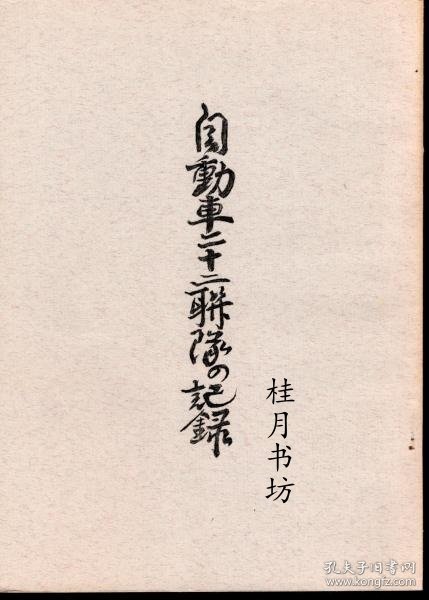 自動車二十二聯隊の記録
桂月书坊
孔夫子旧书网
www.kongfz.com